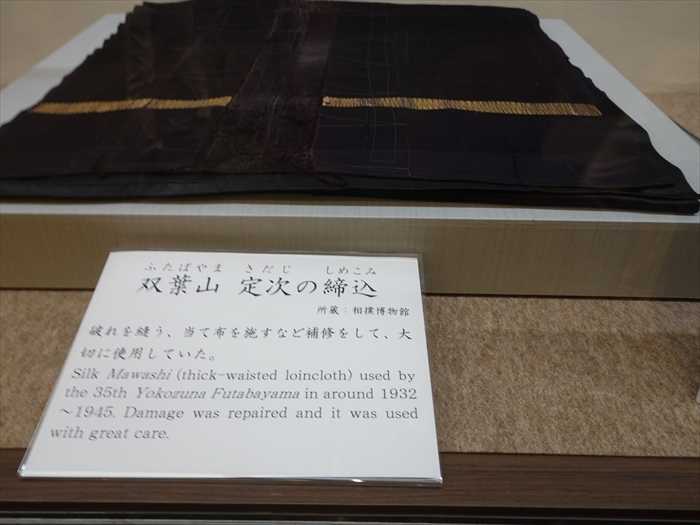 ふたばやま さだじ しめこみ
双葉山 定次の締込
所蔵：相撲博物館
破れを縫う、当て布を施すなど補修をして、大
切に使用していた。
Silk Mawashi (thick-waisted loincloth) used by
the 35th Yokozuna Futabayama in around 1932
～1945. Damage was repaired and it was used
with great care.